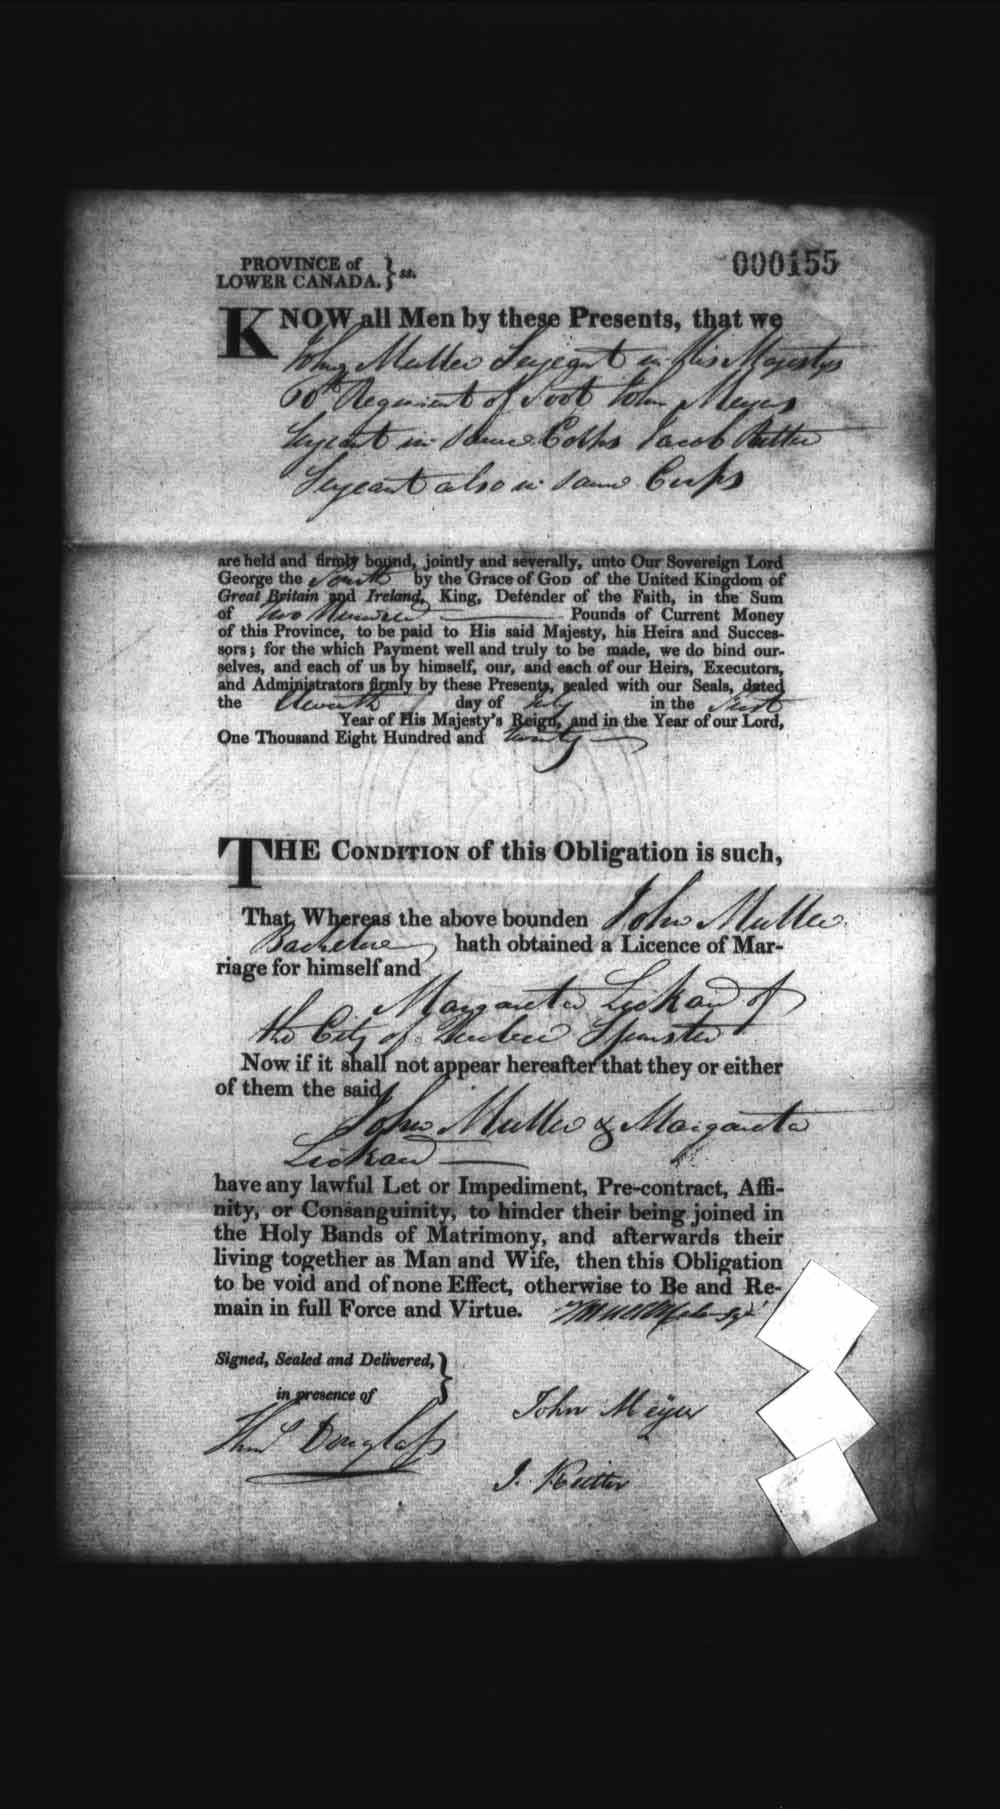 PROVINCE of
LOWER CANADA. } ss.
000155
KNOW all Men by these Presents, that we
John Muller Serjeant in His Majestys
60th Regiment of Foot John Meyer
Serjeant in same Corps Jacob Rutter
Serjeant also in same Corps
are held and firmly bound, jointly and severally, unto Our Sovereign Lord
George the Fourth by the Grace of GOD of the United Kingdom of
Great Britain and Ireland, King, Defender of the Faith, in the Sum
of Two Hundred Pounds of Current Money
of this Province, to be paid to His said Majesty, his Heirs and Succes-
sors; for the which Payment well and truly to be made, we do bind our-
selves, and each of us by himself, our, and each of our Heirs, Executors,
and Administrators firmly by these Presents, sealed with our Seals, dated
the day of July in the First
Year of His Majesty's Reign, and in the Year of our Lord,
One Thousand Eight Hundred and twenty
THE CONDITION of this Obligation is such,
That, Whereas the above bounden John Muller
Bachelor hath obtained a Licence of Mar-
riage for himself and
Margareta of
the City of Quebec Spinster
Now if it shall not appear hereafter that they or either
of them the said
John Muller & Margareta
have any lawful Let or Impediment, Pre-contract, Affi-
nity, or Consanguinity, to hinder their being joined in
the Holy Bands of Matrimony, and afterwards their
living together as Man and Wife, then this Obligation
to be void and of none Effect, otherwise to Be and Re-
main in full Force and Virtue.
Signed, Sealed and Delivered, }
in presence of
John Meyer
Douglass
J. Rutter